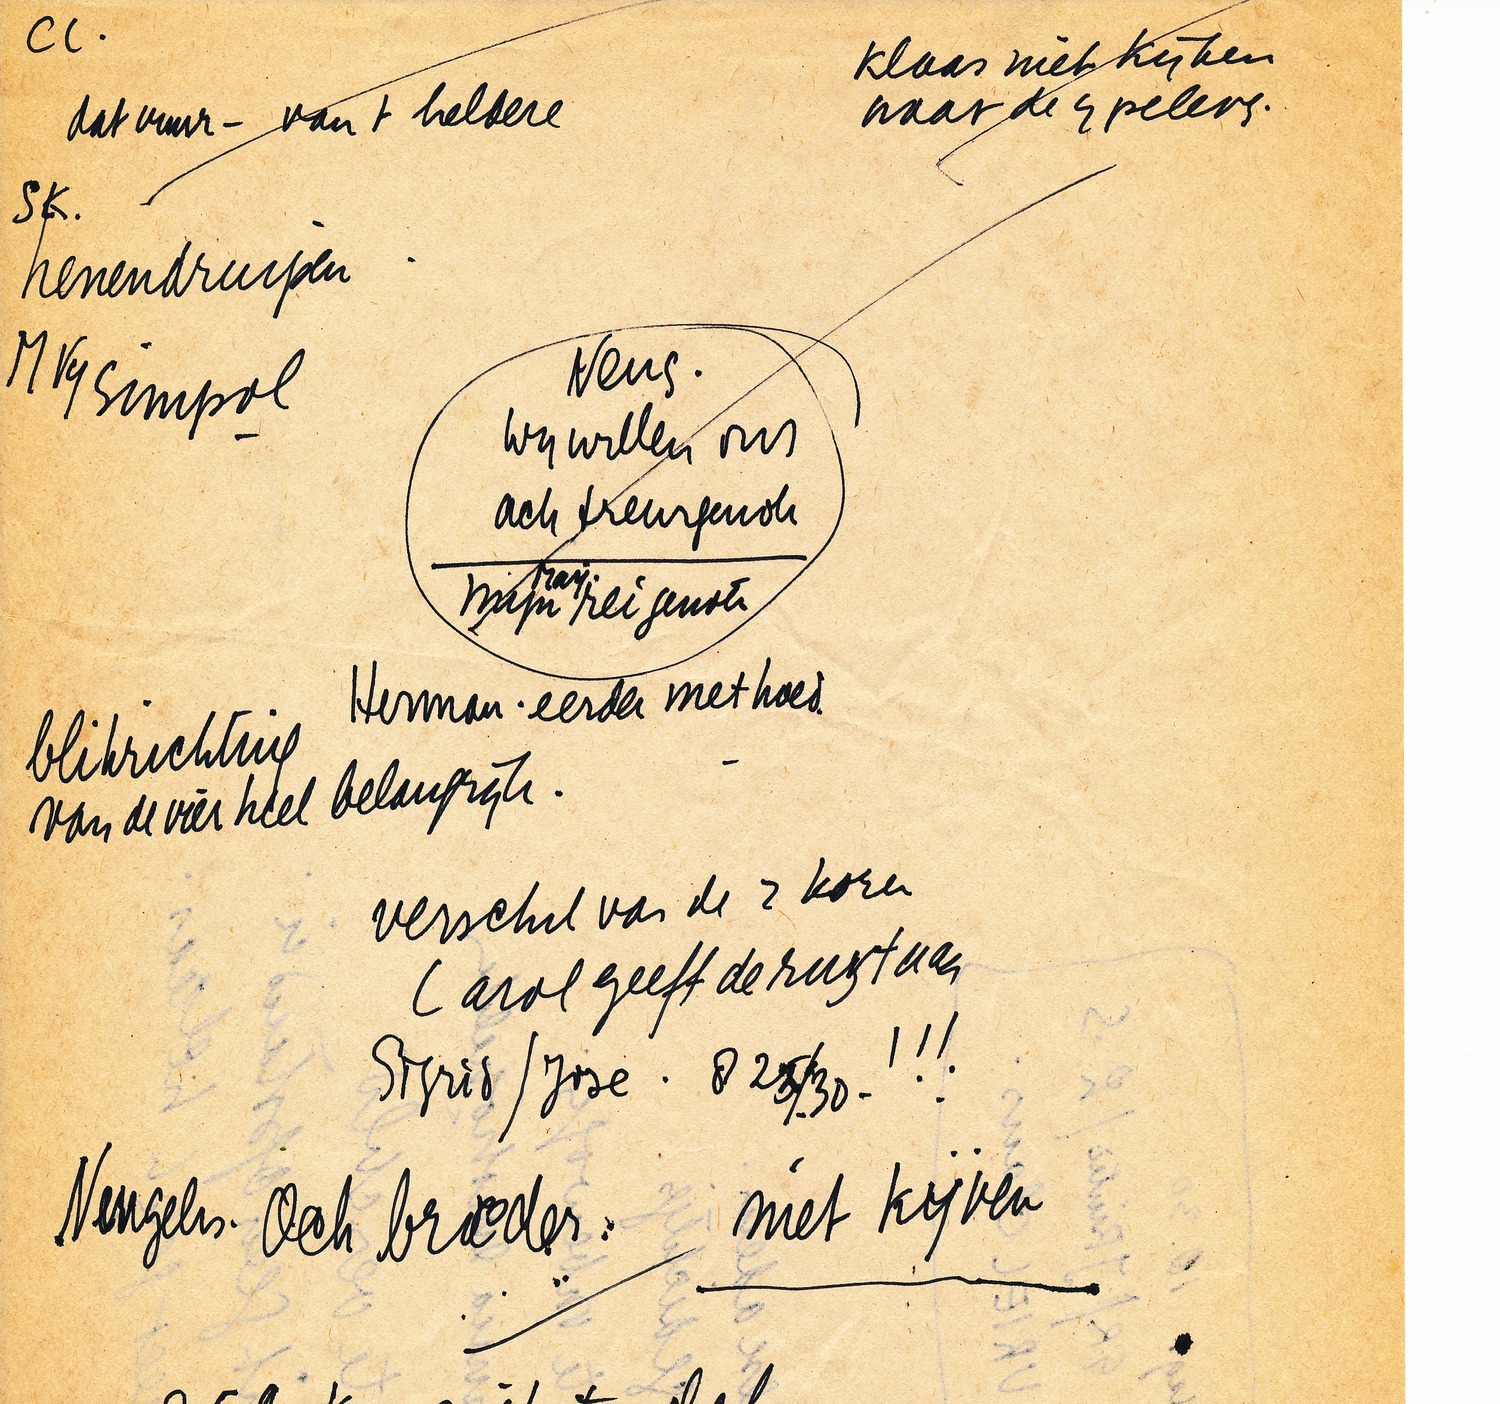 Cl.
dat vuur - van t heldere
Klaas niet kijken
naar de spelers.
SK.
henendruipen
My Simpol
Neng.
wy willen ons
ach treurgenoh
mijn reigenoh
Herman. eerder met hoed.
blikrichting
van de vier heel belangrijk.
verschil van de 2 koren
Carol geeft de rug taan
Sigrid / Jose. 8 25/30 - !!!
Nengels. Och broeder: niet kijven